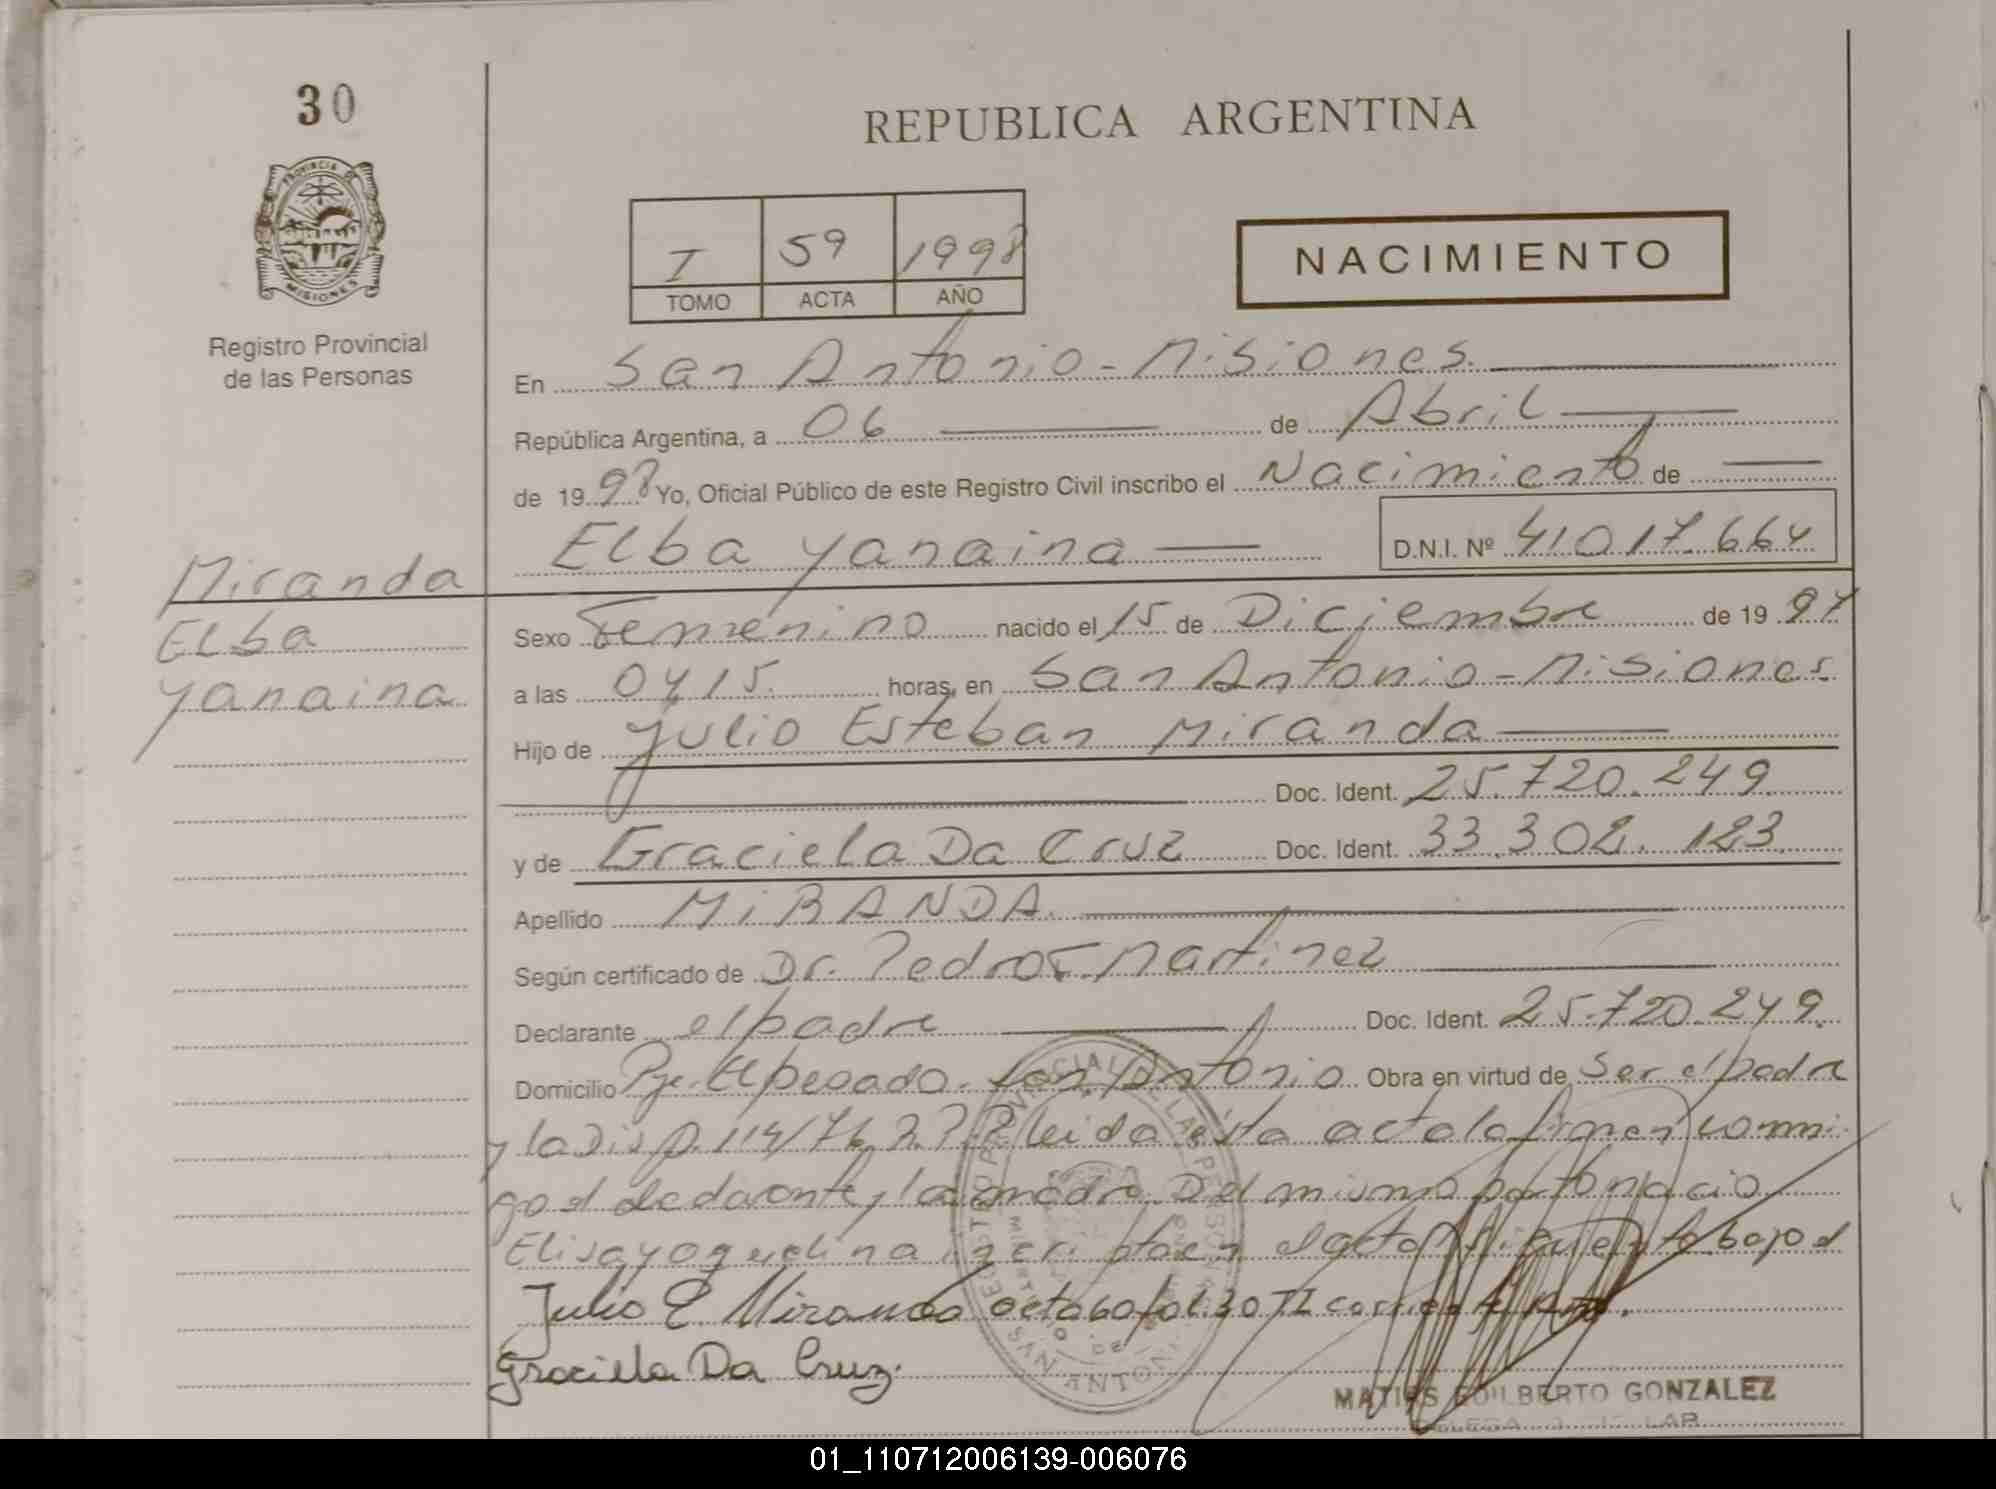 30
REPUBLICA ARGENTINA
PROVINCIA DE
MISIONES
Registro Provincial
de las Personas
I 59 1998
TOMO ACTA AÑO
NACIMIENTO
En San Antonio - Misiones
República Argentina, a 06 de Abril
de 19 98 Yo, Oficial Público de este Registro Civil inscribo el Nacimiento de
Elba Yanaina D.N.I. Nº 41017.664
Miranda
Elba
Yanaina
Sexo Femenino nacido el 15 de Diciembre de 19 97
a las 0415. horas, en San Antonio - Misiones.
Hijo de Julio Esteban Miranda
Doc. Ident. 25.720.249.
y de Graciela Da Cruz Doc. Ident. 33.302.123.
Apellido MIRANDA.
Según certificado de Dr. Pedro Martinez
Declarante el padre Doc. Ident. 25.720.249.
Domicilio Pje. San Antonio Obra en virtud de Ser el padre
y la Disp. 114/76 leida esta acta la firman conmi-
go el declarante y la madre Del mismo parto nacio
Elisa yoquelina inscripta en el acta bajo el
Julio E. Miranda acta 60 fol. 30 TI
Graciela Da Cruz.
MATIAS EDILBERTO GONZALEZ
01_110712006139-006076